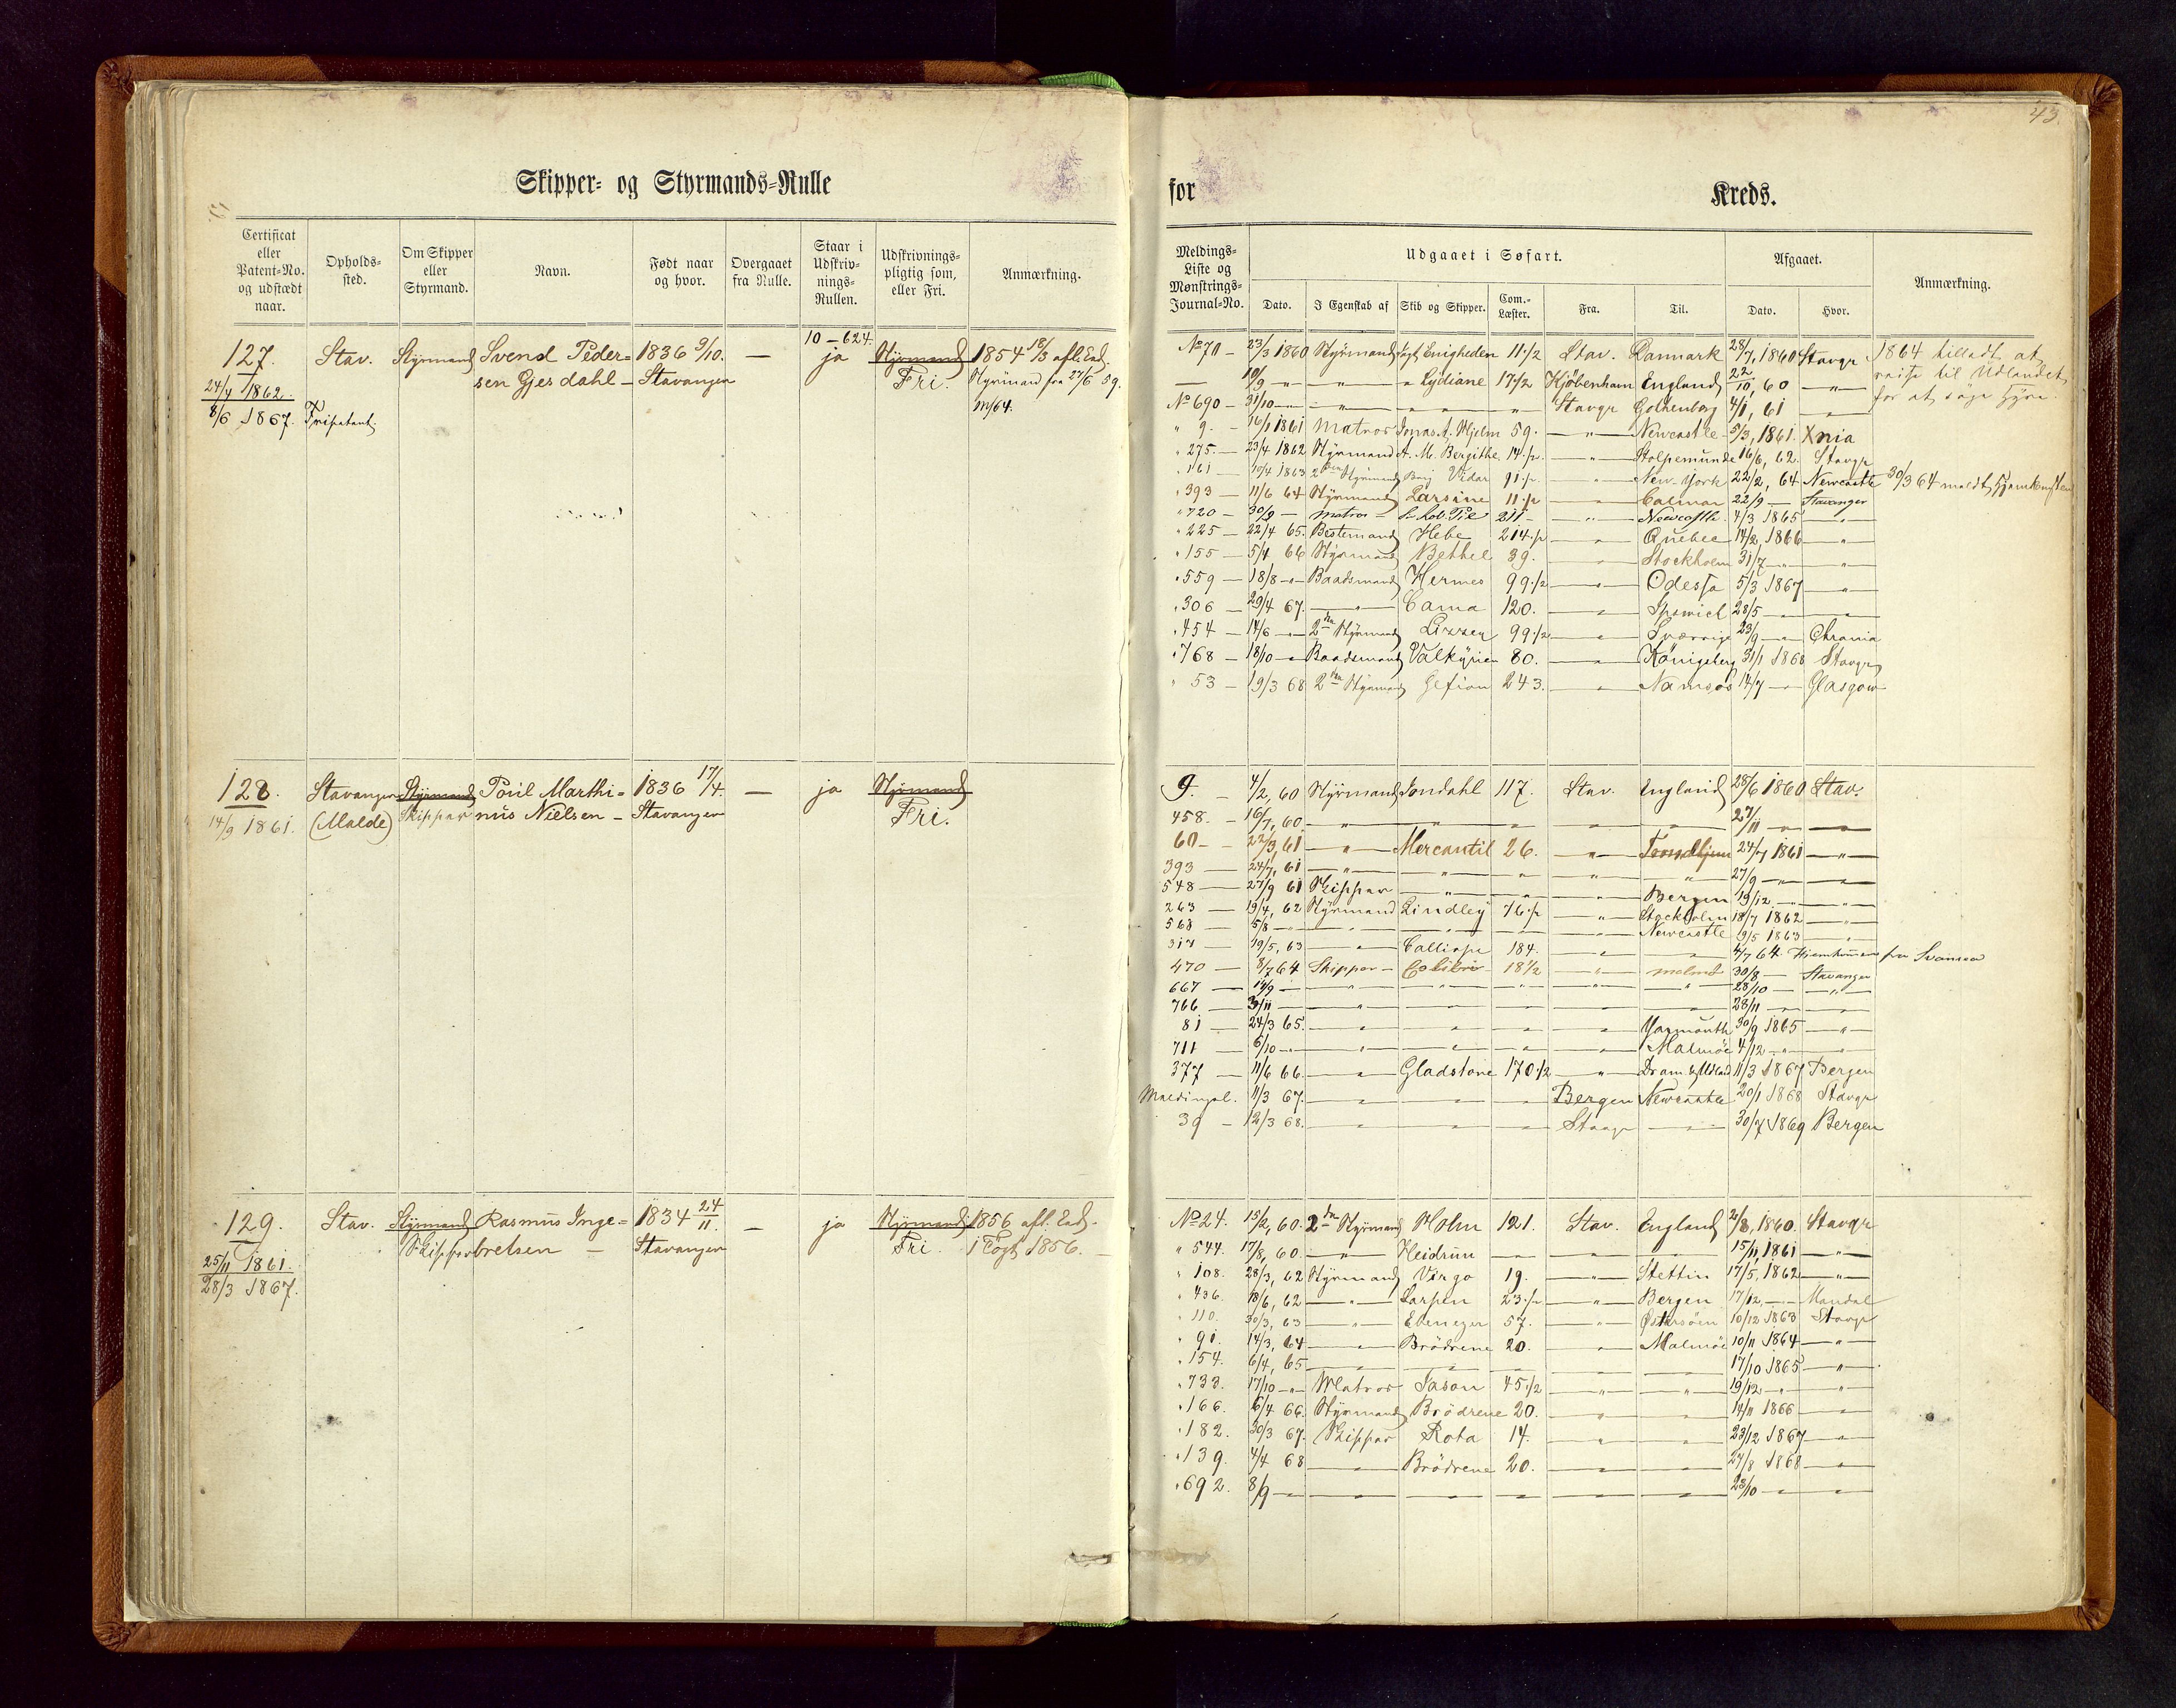 Skipper- og Styrmands-Rulle
Certificat eller Patent-No. og udstædt naar.
Opholds-sted.
Om Skipper eller Styrmand.
Navn.
Født naar og hvor.
Overgaaet fra Rulle.
Staar i Udskriv-nings-Rullen.
Udskrivnings-pligtig som, eller Fri.
Anmærkning.
10-624.
127. Stav. Styrmand Svend Peder= 1836 9/10. — ja Styrmand 1854 18/3 afl. Eed.
24/4 1862. sen Gjesdahl — Stavanger Fri. Styrmand fra 27/6 59.
8/6 1867. Fripatent. M/64.
128. Stavanger Styrmand Povil Marthi= 1836 17/4. — ja Styrmand
14/9 1861. (Malde) Skipper nus Nielsen — Stavanger Fri.
129. Stav. Styrmand Rasmus Inge= 1834 24/11. — ja Styrmand 1856 afl. Eed.
25/11 1861. Skipper bretsen — Stavanger Fri. i Togt 1856.
28/3 1867.
43.
for Kreds.
Meldings-Liste og Mønstrings-Journal-No.
Udgaaet i Søfart.
Afgaaet.
Anmærkning.
Dato. I Egenskab af Skib og Skipper. Com.-Læster. Fra. Til. Dato. Hvor.
No 70 — 23/3 1860 Styrmand Jagt Enigheden 11 1/2 Stav. Danmark 28/7, 1860 Stavgr 1864 tilladt at
— 10/9 — " — — " — " Lydiane 17 1/2 Kjöbenham England 22/10, 60 — " — reise til Udlandet
No 690 — 31/10 — " — — " — " " " Stavgr Gothenborg 4/1, 61 — " — for at søge Hyre.
" 9. — 16/1 1861 Matros Jonas A. Hjelm 59. — " — Newcastle 5/3, 1861. Xnia
" 275. — 23/4 1862 Styrmand A. M. Bergithe 14 1/2 — " — Stolpemunde 16/6, 62. Stavgr
" 161 — 10/4 1863 2den Styrmand Brig Vidar 91 1/2 — " — New-York 22/2, 64 Newcastle 30/3 64 meldt Hjemkomsten
" 393 — 11/6 64 Styrmand Larsine 11 1/2 — " — Calmar 22/9 — Stavanger
" 720 — 30/9 — Matros — Sr Rob. Peel 211 — — " — Newcastle 4/3 1865 — " —
" 225 — 22/4 65. Bestemand Hebe 214 1/2 — " — Quebec 14/2, 1866 — " —
" 155 — 5/4 66 Styrmand Bethel 39. — " — Stockholm 31/7 — " — — " —
" 559 — 18/8 — " — Baadsmand Hermes 99 1/2 — " — Odessa 5/3 1867 — " —
" 306 — 29/4 67. — " — Cama 120. — " — Ipswich 28/5 — " — — " —
" 454 — 14/6 — " — 2den Styrmand Lizzey 99 1/2 — " — Sverrige 23/9 — " — Chrania
" 768 — 18/10 — " — Baadsmand Valkyrien 80. — " — Königsberg 31/1 1868 Stavgr
" 53 — 19/3 68 2den Styrmand Gefion 243. — " — Namsos 14/7 — " — Glasgow
9. — 4/2, 60 Styrmand Sondahl 117. Stav. England 28/6 1860 Stav.
458. — 16/7, 60. — " — — " — — " — — " — — " — 27/11 — " — — " —
60 — 22/3, 61 — " — Mercantil 26. — " — Trondhjem 24/7 1861 — " —
393 — 24/7, 61 — " — — " — " — " — — " — 27/9 — " — — " —
548 — 27/9 61 Skipper — " — — " — — " — Bergen 19/12 — " — — " —
263 — 19/4, 62 Styrmand Lindley 76 1/2 — " — Stockholm 18/7 1862 — " —
568 — 5/8 — " — — " — — " — — " — — " — Newcastle 9/5 1863 — " —
317 — 19/5, 63 — " — Calliope 184. — " — — " — 4/7 64. Hjemkommen fra Svansea
470 — 8/7 64 Skipper — Colibri — 18 1/2 — " — Malmö 30/8 — Stavanger
667 — 14/9 — — " — — " — — " — — " — — " — 28/10 — — " —
766 — 3/11 — — " — — " — — " — — " — — " — 28/11 — — " —
81 — 24/3 65. — " — — " — — " — — " — Yarmouth 30/9 1865 — " —
711 — 6/10 — " — — " — — " — — " — — " — Malmöe 4/12 — " — — " —
377 — 11/6 66. — " — Gladstone 170 1/2 — " — Dram. & Udland 11/3 1867 Bergen
Meldingsl. 11/3 67. — " — — " — — " — Bergen Newcastle 20/1 1868 Stavgr
39 — 12/3 68. — " — — " — — " — Stavgr — " — 30/7 1869 Bergen
No 24. 15/2, 60. 2den Styrmand Holm 121. Stav. England 21/8, 1860. Stavgr
" 544. 17/8, 60. — " — Heidrun — " — — " — — " — 15/11, 1861 — " —
" 108. 28/3, 62 Styrmand Virgo 19. — " — Stettin 17/5, 1862 — " —
" 436. 18/6, 62 — " — Larpen 23 1/2 — " — Bergen 17/12, — " — Mandal
" 110. 30/3, 63 — " — Ebenezer 57. — " — Østersöen 10/12 1863 Stavgr
" 91. 14/3, 64 — " — Brödrene 20. — " — Malmöe 10/11 1864 — " —
" 154. 6/4, 65 — " — — " — — " — — " — — " — 17/10 1865 — " —
" 733. 17/10 — " — Matros Jason 45 1/2 — " — — " — 19/12 — " — — " —
" 166. 6/4 66. Styrmand Brödrene 20. — " — — " — 14/11 1866 — " —
" 182. 30/3 67. Skipper Rota 14. — " — — " — 23/12 1867 — " —
" 139. 4/4 68 — " — Brödrene 20. — " — — " — 27/8 1868 — " —
" 692. 8/9 — " — — " — — " — — " — — " — — " — 23/10 — " — — " —